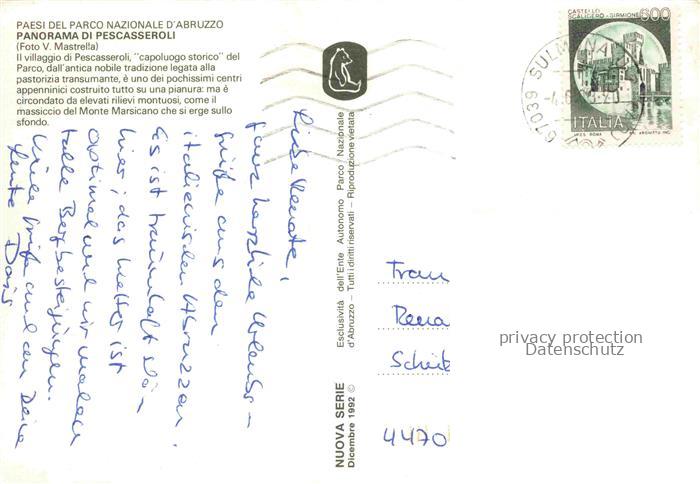 PAESI DEL PARCO NAZIONALE D'ABRUZZO
PANORAMA DI PESCASSEROLI
(Foto V. Mastrella)
Il villaggio di Pescasseroli, "capoluogo storico" del
Parco, dall'antica nobile tradizione legata alla
pastorizia transumante, è uno dei pochissimi centri
appenninici costruito tutto su una pianura: ma è
circondato da elevati rilievi montuosi, come il
massiccio del Monte Marsicano che si erge sullo
sfondo.
Liebe Renate,
ganz herzliche Urlaubs-
grüße aus den
italienischen Abruzzen.
Es ist traumhaft schö-
hier; das Wetter ist
optimal und wir machen
tolle Bergbesteigungen.
Viele Grüße und an Deine
Leute Doris
NUOVA SERIE
Dicembre 1992 ©
Esclusività dell'Ente Autonomo Parco Nazionale
d'Abruzzo - Tutti i diritti riservati - Riproduzione vietata
CASTELLO
SCALIGERO - SIRMIONE
600
ITALIA
I.P.Z.S. ROMA
67039 SULMONA
Frau
Rena
4470
privacy protection
Datenschutz